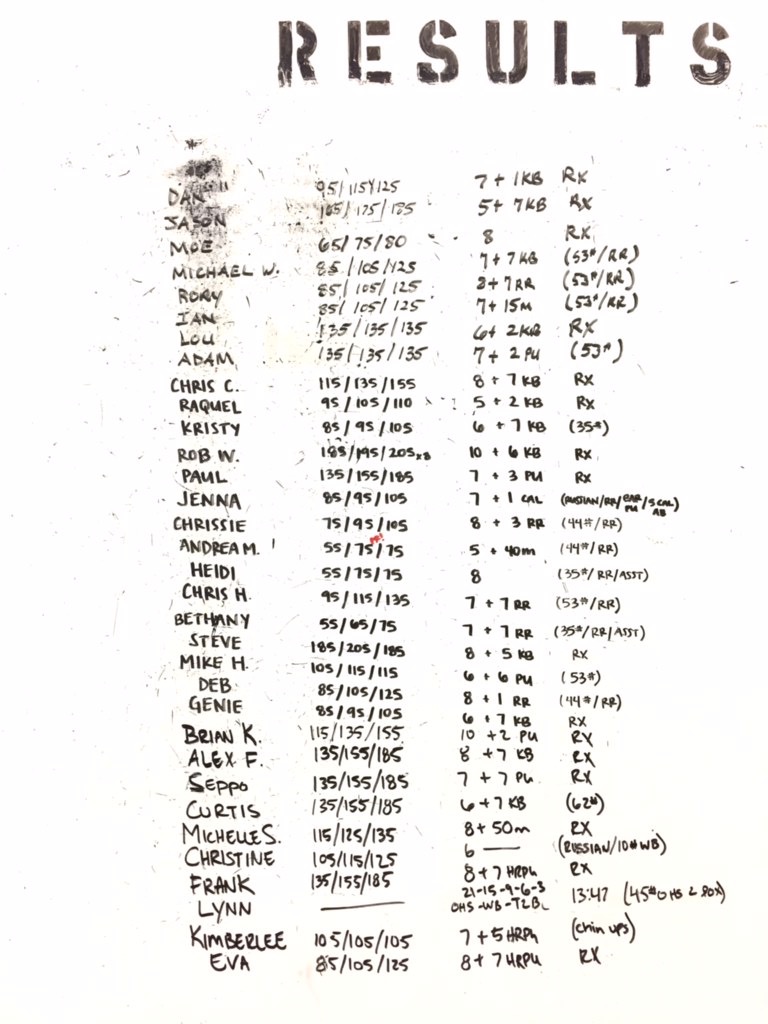 RESULTS
DAN 95/115/125 7 + 1KB RX
JASON 165/175/185 5 + 7KB RX
MOE 65/75/80 8 RX
MICHAEL W. 85/105/125 7 + 7KB (53#/RR)
RORY 85/105/125 8 + 7RR (53#/RR)
IAN 85/105/125 7 + 15M (53#/RR)
LOU 135/135/135 6 + 2KB RX
ADAM 135/135/135 7 + 2 PU (53#)
CHRIS C. 115/135/155 8 + 7 KB RX
RAQUEL 95/105/110 5 + 2 KB RX
KRISTY 85/95/105 6 + 7 KB (35#)
ROB W. 185/195/205x8 10 + 6 KB RX
PAUL 135/155/185 7 + 3 PU RX
JENNA 85/95/105 7 + 1 CAL (RUSSIAN/RR/BAR PU/5 CAL AB
CHRISSIE 75/95/105 8 + 3 RR (44#/RR)
ANDREA M. 55/75/75 PR! 5 + 40m (44#/RR)
HEIDI 55/75/75 8 (35#/RR/ASST)
CHRIS H. 95/115/135 7 + 7 RR (53#/RR)
BETHANY 55/65/75 7 + 7 RR (35#/RR/ASST)
STEVE 185/205/185 8 + 5 KB RX
MIKE H. 105/115/115 6 + 6 PU (53#)
DEB 85/105/125 8 + 1 RR (44#/RR)
GENIE 85/95/105 6 + 7 KB RX
BRIAN K. 115/135/155 10 + 2 PU RX
ALEX F. 135/155/185 8 + 7 KB RX
SEPPO 135/155/185 7 + 7 PU RX
CURTIS 135/155/185 6 + 7 KB (62#)
MICHELLE S. 115/125/135 8 + 50m RX
CHRISTINE 105/115/125 6 — (RUSSIAN/10# WB)
FRANK 135/155/185 8 + 7 HRPU RX
LYNN — 21-15-9-6-3 13:47 (45# OHS
OHS-WB-T2B
KIMBERLEE 105/105/105 7 + 5 HRPU (chin ups)
EVA 85/105/125 8 + 7 HRPU RX